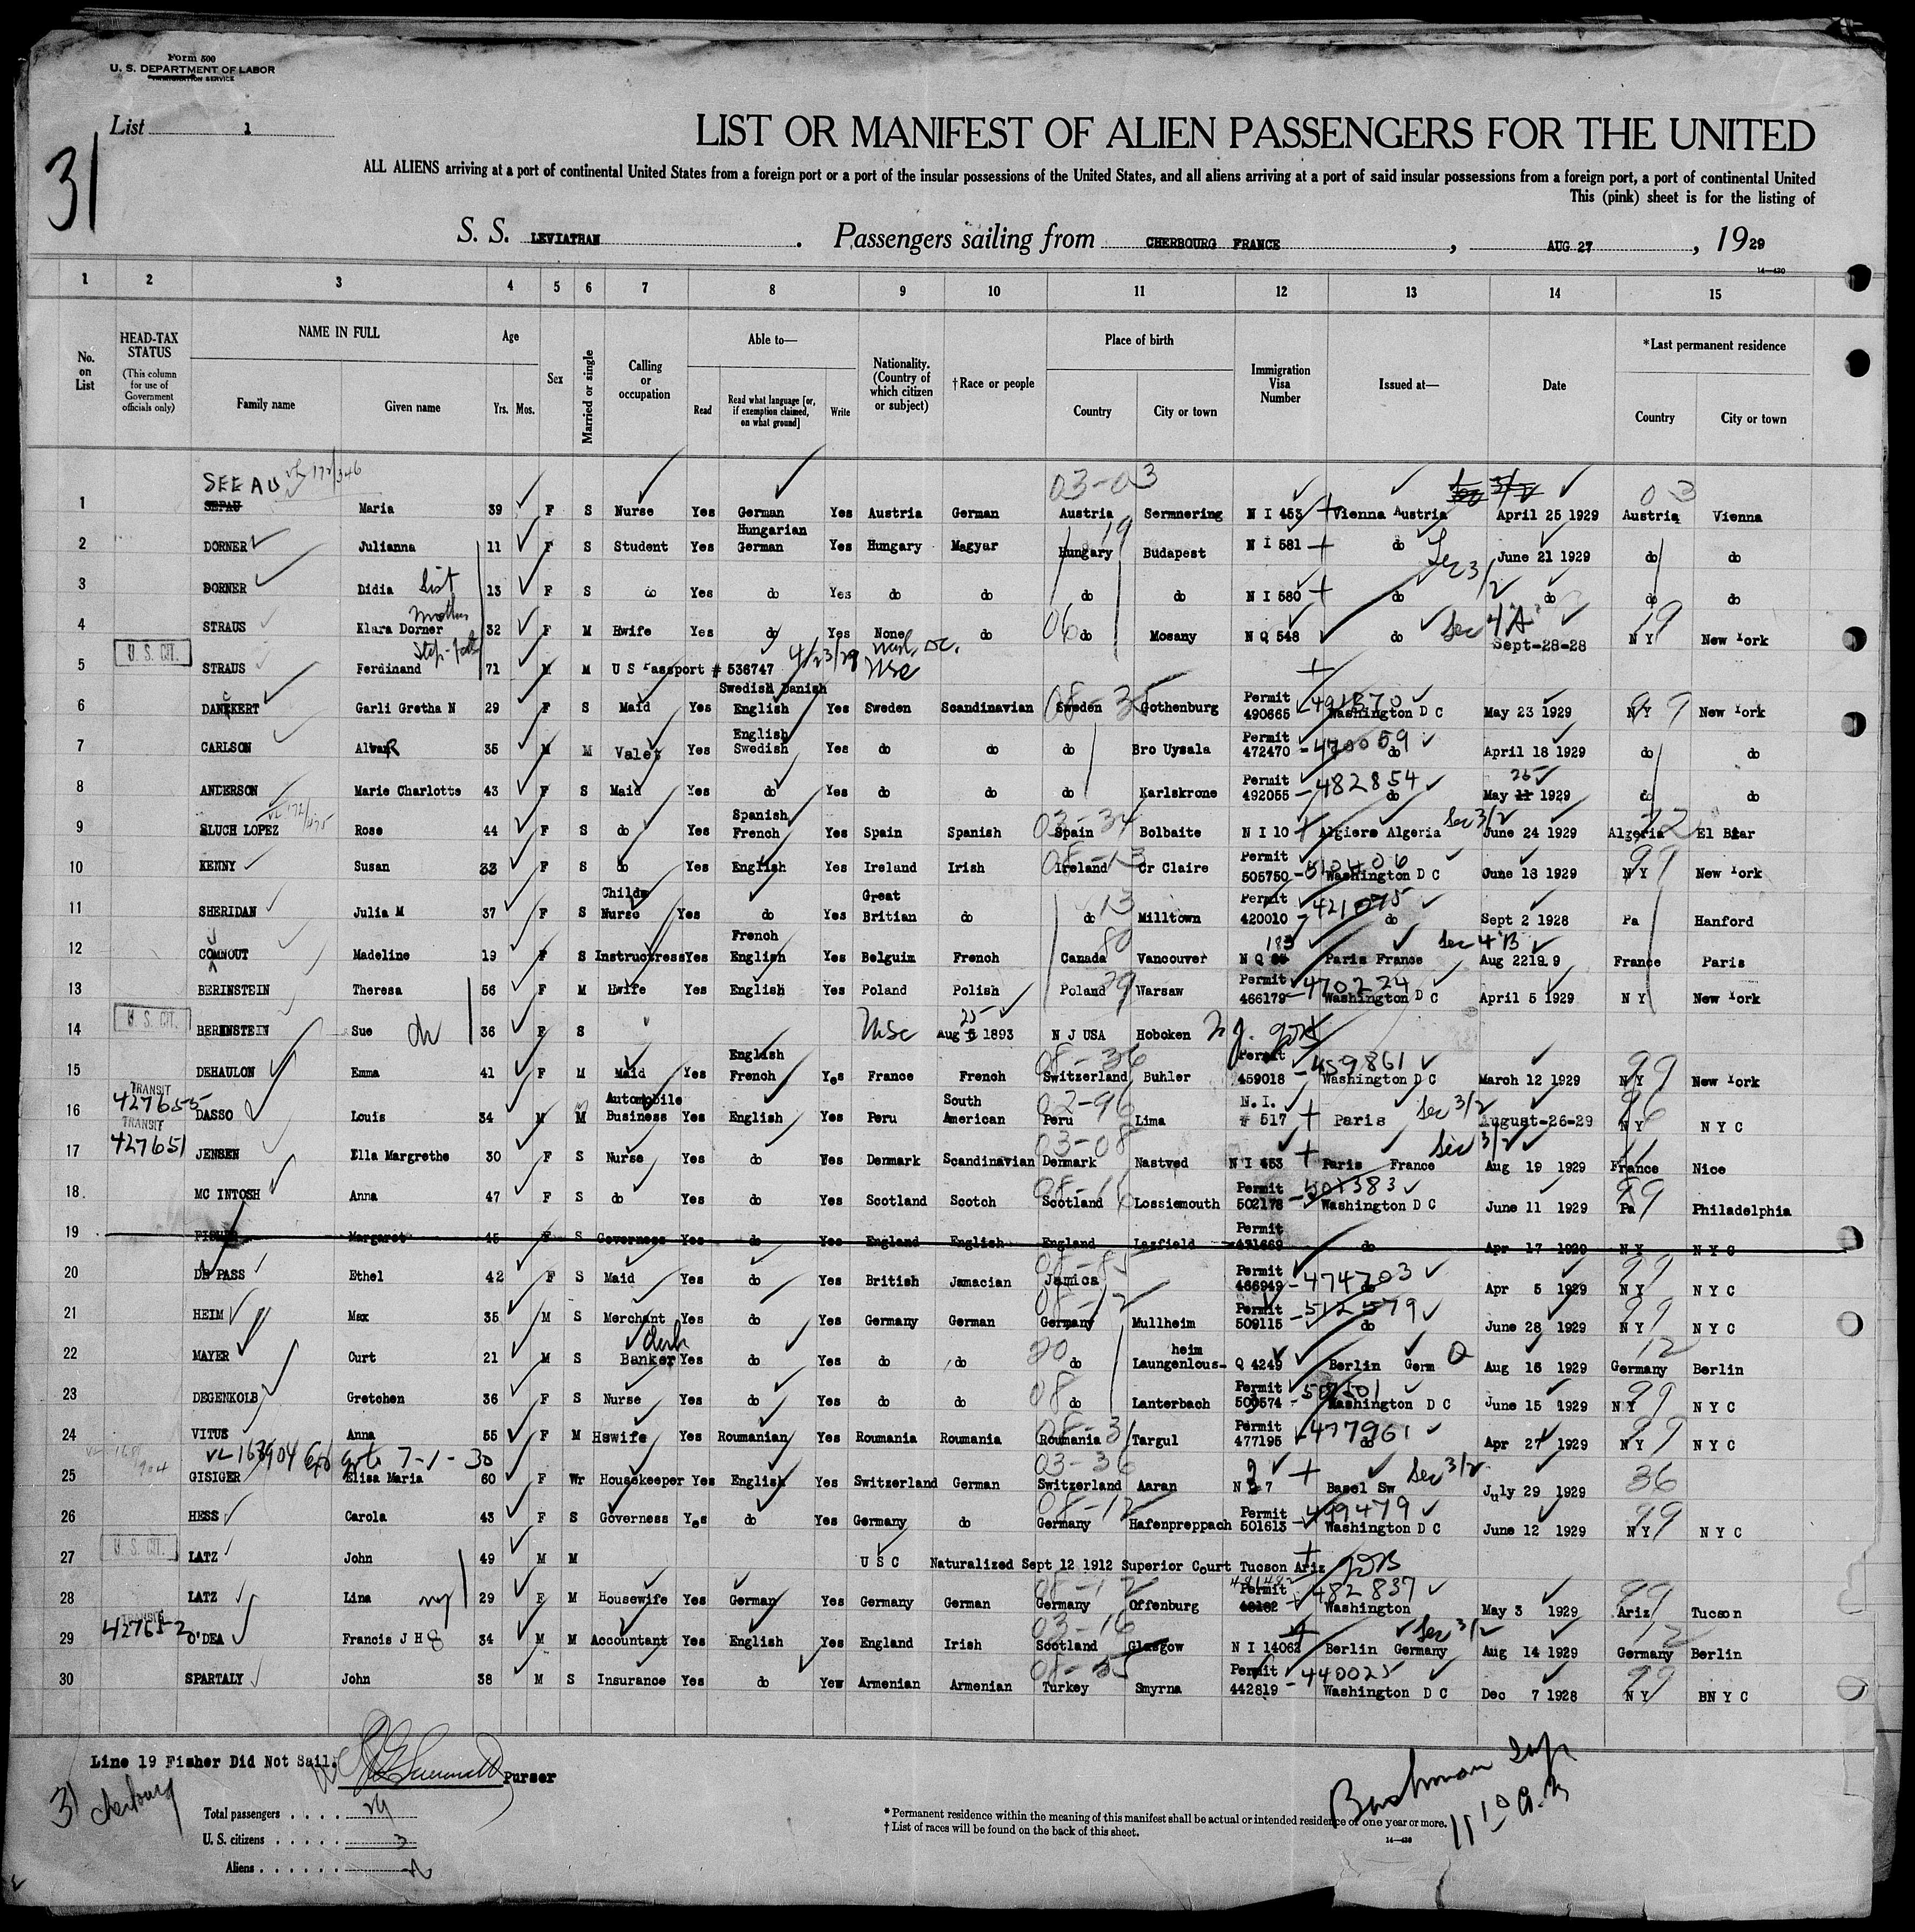 Form 500
U. S. DEPARTMENT OF LABOR
IMMIGRATION SERVICE
List 1
31
LIST OR MANIFEST OF ALIEN PASSENGERS FOR THE UNITED
ALL ALIENS arriving at a port of continental United States from a foreign port or a port of the insular possessions of the United States, and all aliens arriving at a port of said insular possessions from a foreign port, a port of continental United
This (pink) sheet is for the listing of
S. S. LEVIATHAN. Passengers sailing from CHERBOURG FRANCE, AUG 27, 1929
14—430
1 2 3 4 5 6 7 8 9 10 11 12 13 14 15
No. on List
HEAD-TAX STATUS
(This column for use of Government officials only)
NAME IN FULL
Family name Given name
Age
Yrs. Mos.
Sex
Married or single
Calling or occupation
Able to—
Read Read what language [or, if exemption claimed, on what ground] Write
Nationality. (Country of which citizen or subject)
†Race or people
Place of birth
Country City or town
Immigration Visa Number
Issued at—
Date
*Last permanent residence
Country City or town
SEE AU 172/346 03-03 03
1 SEPAU Maria 39 F S Nurse Yes German Yes Austria German Austria Sermnering N I 453 Vienna Austria April 25 1929 Austria Vienna
2 DORNER Julianna 11 F S Student Yes Hungarian German Yes Hungary Magyar Hungary 19 Budapest N I 581 do June 21 1929 do do
Sec 3/2
3 DORNER Didia Sist 13 F S do Yes do Yes do do do do N I 580 do do do do
4 STRAUS Klara Dorner Mother 32 F M Hwife Yes do Yes None do 06 do Mosany N Q 548 do Sec 4"A" Sept-28-28 19 N Y New York
U. S. CIT.
5 STRAUS Ferdinand 71 M M U S Passport # 536747 4/23/29 Wash, DC. USC
6 DANEKERT Garli Gretha N 29 F S Maid Yes Swedish Danish English Yes Sweden Scandinavian Sweden Gothenburg Permit 490665 Washington D C May 23 1929 N Y 99 New York
7 CARLSON Alvan R 35 M M Valet Yes English Swedish Yes do do do Bro Uysala Permit 472470 - 470059 do April 18 1929 do do
8 ANDERSON Marie Charlotte 43 F S Maid Yes do Yes do do do Karlskrone Permit 492055 - 482854 do May 11 25 1929 do do
9 SLUCH LOPEZ Rose 44 F S do Yes Spanish French Yes Spain Spanish 03-34 Spain Bolbaite N I 10 Algiers Algeria Sec 3/2 June 24 1929 Algeria El Biar
10 KENNY Susan 33 F S do Yes English Yes Ireland Irish 08-13 Ireland Cr Claire Permit 505750 - 510406 Washington D C June 18 1929 99 N Y New York
11 SHERIDAN Julia M 37 F S Childs Nurse Yes do Yes Great Britian do do 13 Milltown Permit 420010 - 421075 do Sept 2 1928 Pa Hanford
12 COMNOUT Madeline 19 F S Instructress Yes French English Yes Belguim French Canada 80 Vancouver N Q 183 Paris France Sec 4"B" Aug 2219 9 France Paris
13 BERINSTEIN Theresa 56 F M Hwife Yes English Yes Poland Polish Poland 29 Warsaw Permit 466179 - 470224 Washington D C April 5 1929 N Y New York
U. S. CIT.
14 BERENSTEIN Sue 36 F S USC Aug 25 1893 N J USA Hoboken N J.
15 DEHAULON Emma 41 F M Maid Yes English French Yes France French 08-36 Switzerland Buhler Permit 459018 - 459861 Washington D C March 12 1929 99 N Y New York
TRANSIT 427655
16 DASSO Louis 34 M M Automobile Business Yes English Yes Peru South American 02-96 Peru Lima N. I. # 517 Paris Sec 3/2 August-26-29 96 N Y N Y C
TRANSIT 427651
17 JENSEN Ella Margrethe 30 F S Nurse Yes do Yes Denmark Scandinavian 03-08 Denmark Nastved N I 453 Paris France Sec 3/2 Aug 19 1929 France Nice
18. MC INTOSH Anna 47 F S do Yes do Yes Scotland Scotch 08-16 Scotland Lossiemouth Permit 502178 - 501383 Washington D C June 11 1929 99 Pa Philadelphia
19 FISHER Margaret 45 F S Governess Yes do Yes England English England Lezfield Permit 471669 do Apr 17 1929 N Y N Y C
20 DE PASS Ethel 42 F S Maid Yes do Yes British Jamacian 08-85 Jamica Permit 466949 - 474703 do Apr 5 1929 99 N Y N Y C
21 HEIM Max 35 M S Merchant Yes do Yes Germany German 08-12 Germany Mullheim Permit 509115 - 512579 do June 28 1929 99 N Y N Y C
22 MAYER Curt 21 M S Clerk Banker Yes do Yes do do 20 do Laungenlous-heim Q 4249 Berlin Germ Q Aug 16 1929 12 Germany Berlin
23 DEGENKOLB Gretchen 36 F S Nurse Yes do Yes do do 08 do Lanterbach Permit 500574 - 507501 Washington D C June 15 1929 99 N Y N Y C
24 VITUS Anna 55 F M Hswife Yes Roumanian Yes Roumania Roumania 08-31 Roumania Targul Permit 477195 - 477961 do Apr 27 1929 99 N Y N Y C
7-1-30
25 GISIGER Elisa Maria 60 F Wr Housekeeper Yes English Yes Switzerland German 03-36 Switzerland Aaran N I 7 Basel Sw Sec 3/2 July 29 1929 36
26 HESS Carola 43 F S Governess Yes do Yes Germany do 08-12 Germany Hafenpreppach Permit 501613 - 499479 Washington D C June 12 1929 99 N Y N Y C
U. S. CIT.
27 LATZ John 49 M M U S C Naturalized Sept 12 1912 Superior Court Tucson Ariz
28 LATZ Lina 29 F M Housewife Yes German Yes Germany German 08-12 Germany Offenburg Permit 482837 Washington May 3 1929 99 Ariz Tucson
TRANSIT 427652
29 O'DEA Francis J H 34 M M Accountant Yes English Yes England Irish 03-16 Scotland Glasgow N I 14062 Berlin Germany Sec 3/2 Aug 14 1929 12 Germany Berlin
30 SPARTALY John 38 M S Insurance Yes do Yew Armenian Armenian 08-55 Turkey Smyrna Permit 442819 - 440025 Washington D C Dec 7 1928 99 N Y BN Y C
Line 19 Fisher Did Not Sail. Purser
31 Cherbourg
Total passengers . . . . 29
U. S. citizens . . . . . 3
Aliens . . . . . .
* Permanent residence within the meaning of this manifest shall be actual or intended residence of one year or more.
† List of races will be found on the back of this sheet.
14—430